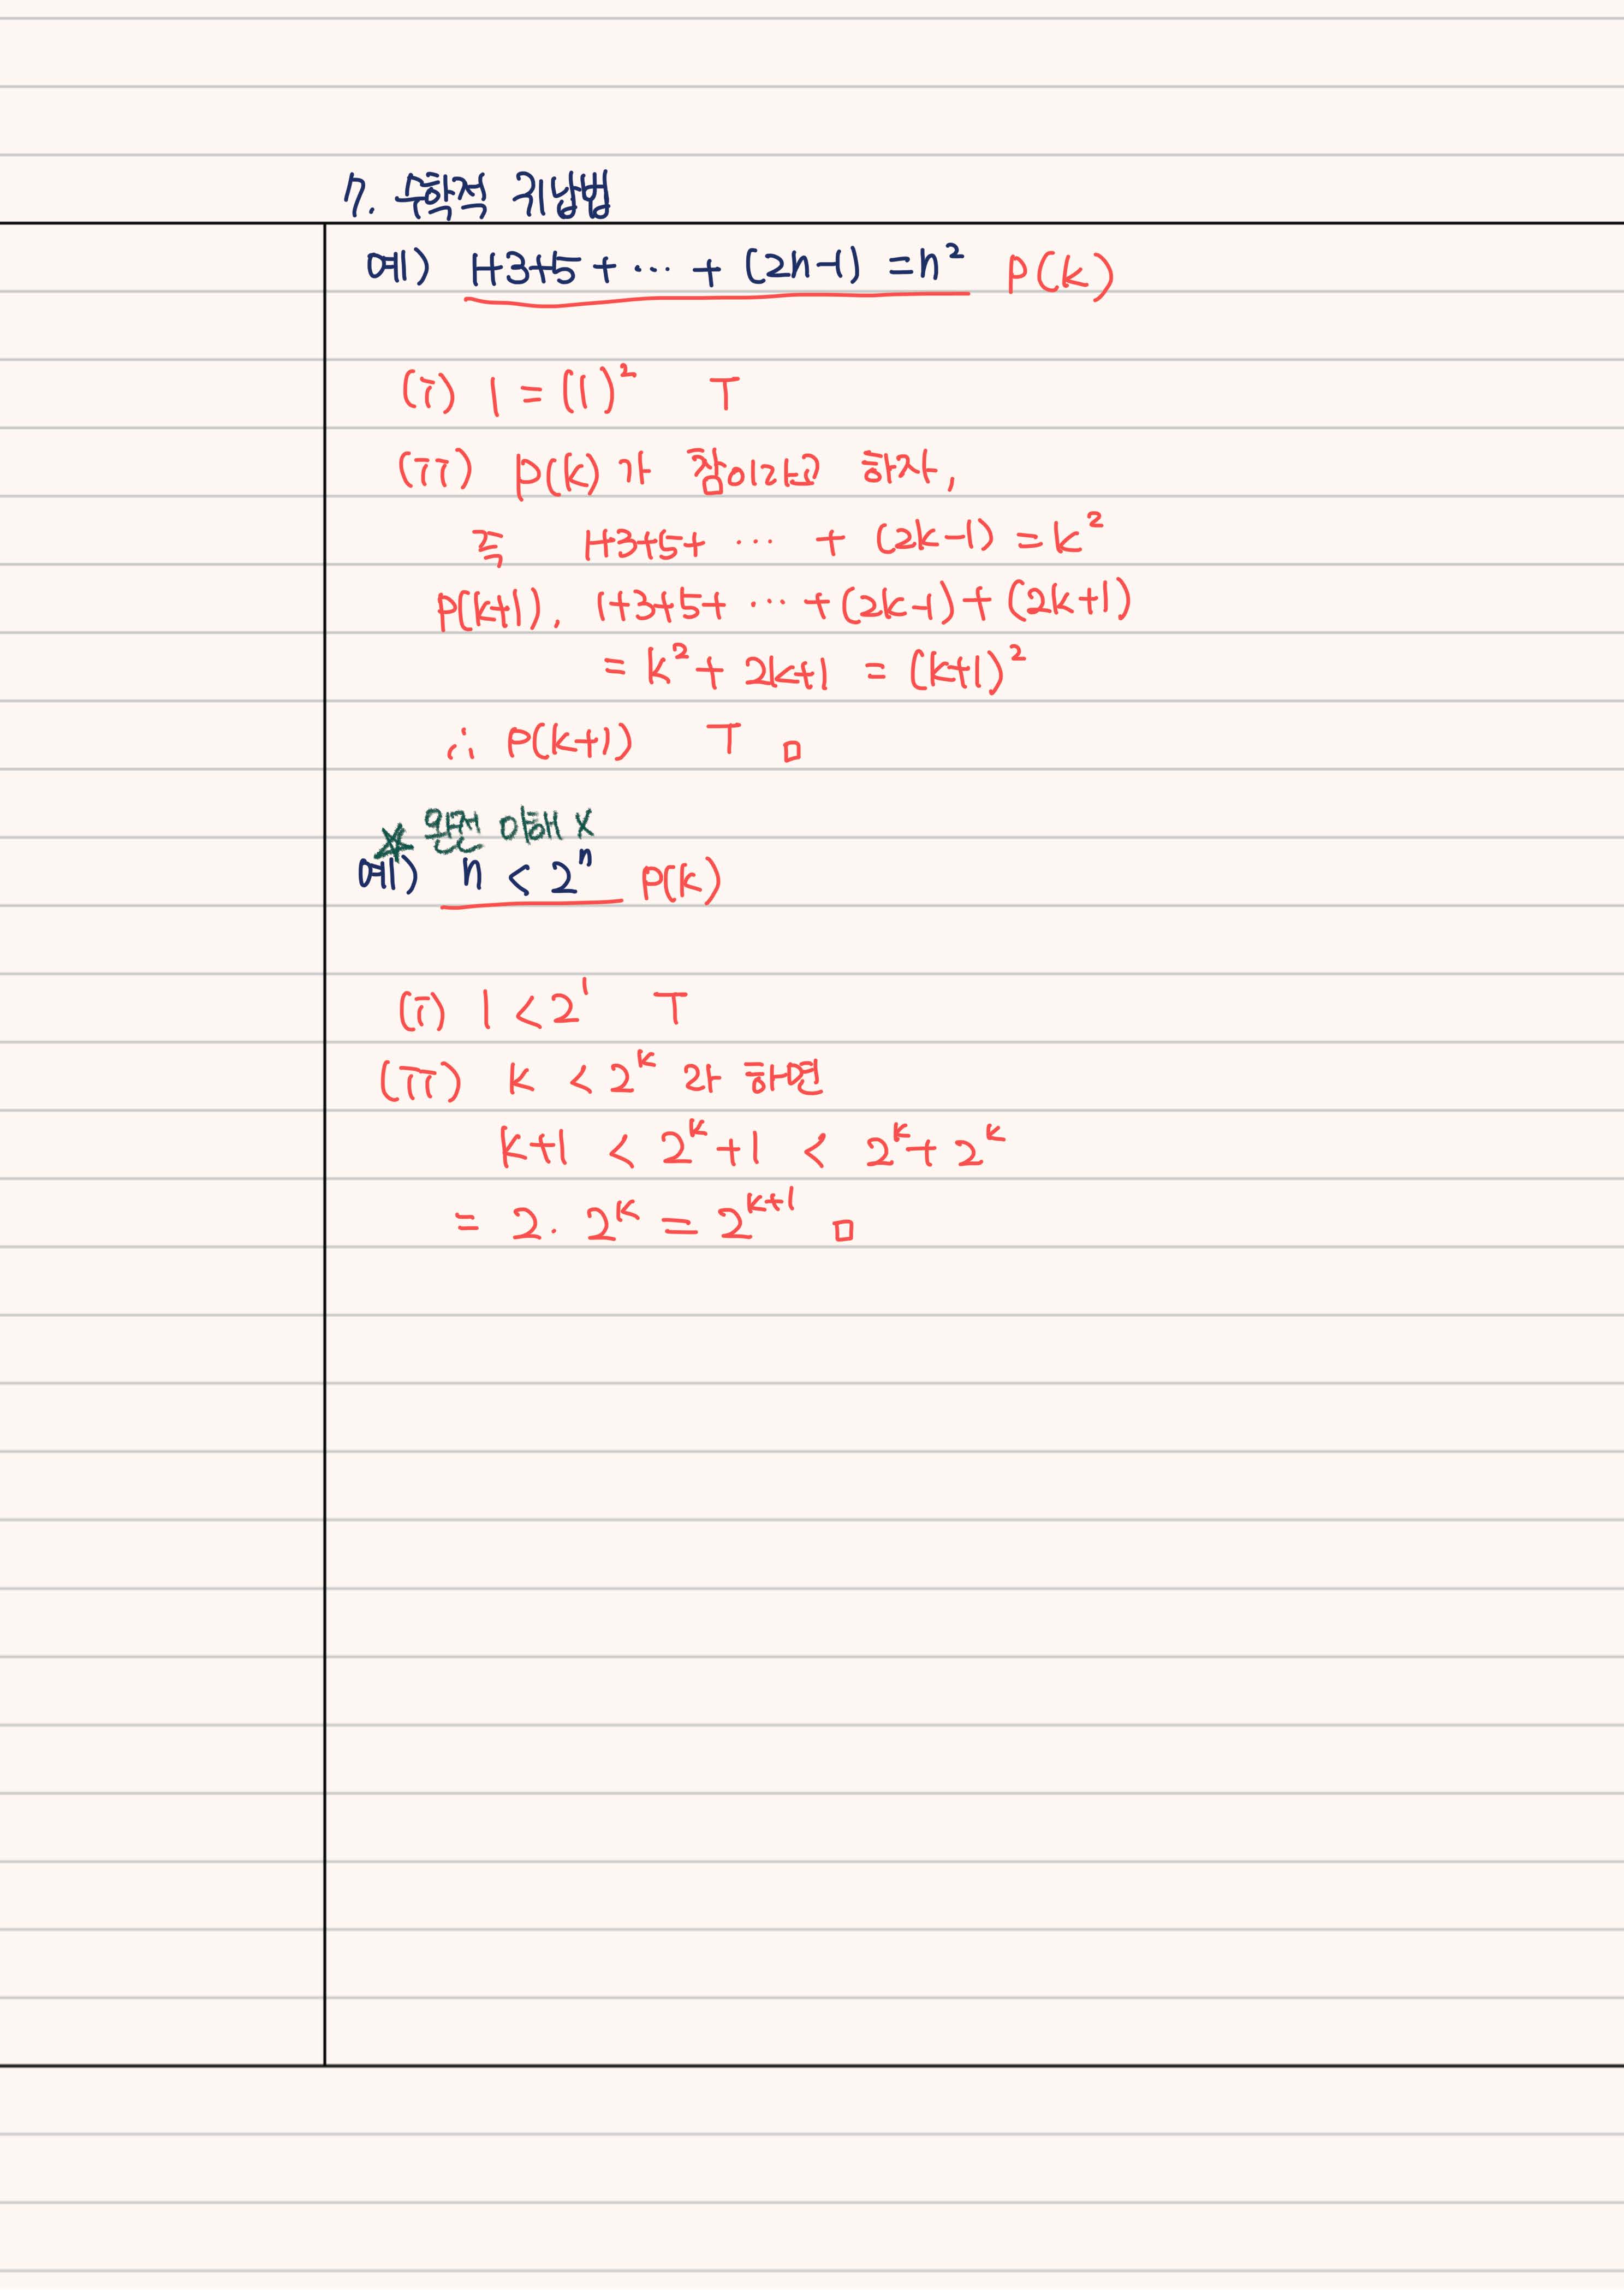 7. 수학적 귀납법
예) 1+3+5+ ··· + (2n-1) = n² P(k)
(i) 1 = (1)² T
(ii) P(k)가 참이라고 하자,
즉 1+3+5+ ··· + (2k-1) = k²
P(k+1), 1+3+5+ ··· +(2k-1)+(2k+1)
= k² + 2k+1 = (k+1)²
∴ P(k+1) T □
☆ 완전 이해 x
예) n < 2ⁿ P(k)
(i) 1 < 2¹ T
(ii) k < 2ᵏ 라 하면
k+1 < 2ᵏ+1 < 2ᵏ+2ᵏ
= 2· 2ᵏ = 2ᵏ⁺¹ □